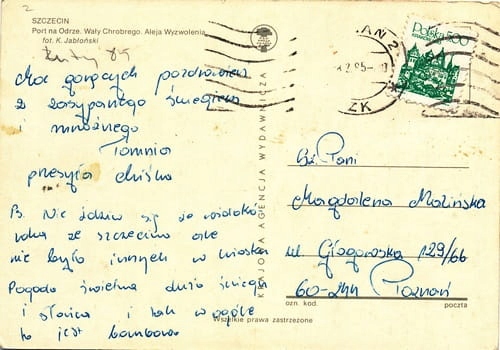 2
SZCZECIN
Port na Odrze. Wały Chrobrego. Aleja Wyzwolenia
fot. K. Jabłoński
Luty 85
Moc gorących pozdrowień
z zasypanego śniegiem
i mroźnego
Torunia
przesyła Miśka
Ps. Nie dziw się że widok
ze szczecina ale
nie było innych w kiosku
Pogoda świetna dużo śniegu
i słońca i tak w ogóle
to jest bombowo
KRAJOWA AGENCJA WYDAWNICZA
Polska 500
2.85
Sz. Pani
Magdalena Molińska
ul Głogowska 129/66
60-244 Poznań
ozn. kod.
poczta
Wszelkie prawa zastrzeżone